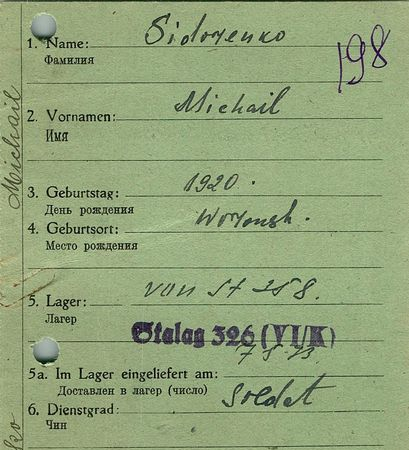 1. Name: Sidorenko
Фамилия
198
2. Vornamen: Michail
Имя
3. Geburtstag: 1920.
День рождения
4. Geburtsort: Woronsh.
Место рождения
5. Lager: von St 258.
Лагер
Stalag 326 (VI/K)
5a. Im Lager eingeliefert am:
Доставлен в лагер (число)
6. Dienstgrad: Soldat
Чин
Michail